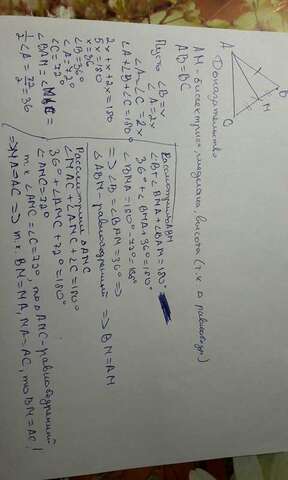 A
B
C
M
AM - биссектриса, медиана, высота (т.к. Δ равнобедр)
AB=BC
Доказательство
Пусть ∠B=x
∠A=2x
∠A=∠C=2x
∠A+∠B+∠C=180°
2x+x+2x=180
5x=180
x=36
∠B=36°
∠A=72°
∠C=72°
∠BAM=∠MAC=
1/2∠A=72/2=36
Рассмотрим ΔABM
∠B+∠BMA+∠BAM=180°
36°+∠BMA+36°=180°
∠BMA=180°-72°=108°
=> ∠B=∠BAM=36° =>
ΔABM - равнобедренный => BM=AM
Рассмотрим ΔAMC
∠MAC+∠AMC+∠C=180°
36°+∠AMC+72°=180°
∠AMC=72°
т.к ∠AMC=∠C=72°, то ΔAMC - равнобедренный
=> MA=AC => т.к BM=MA, MA=AC, то BM=AC!